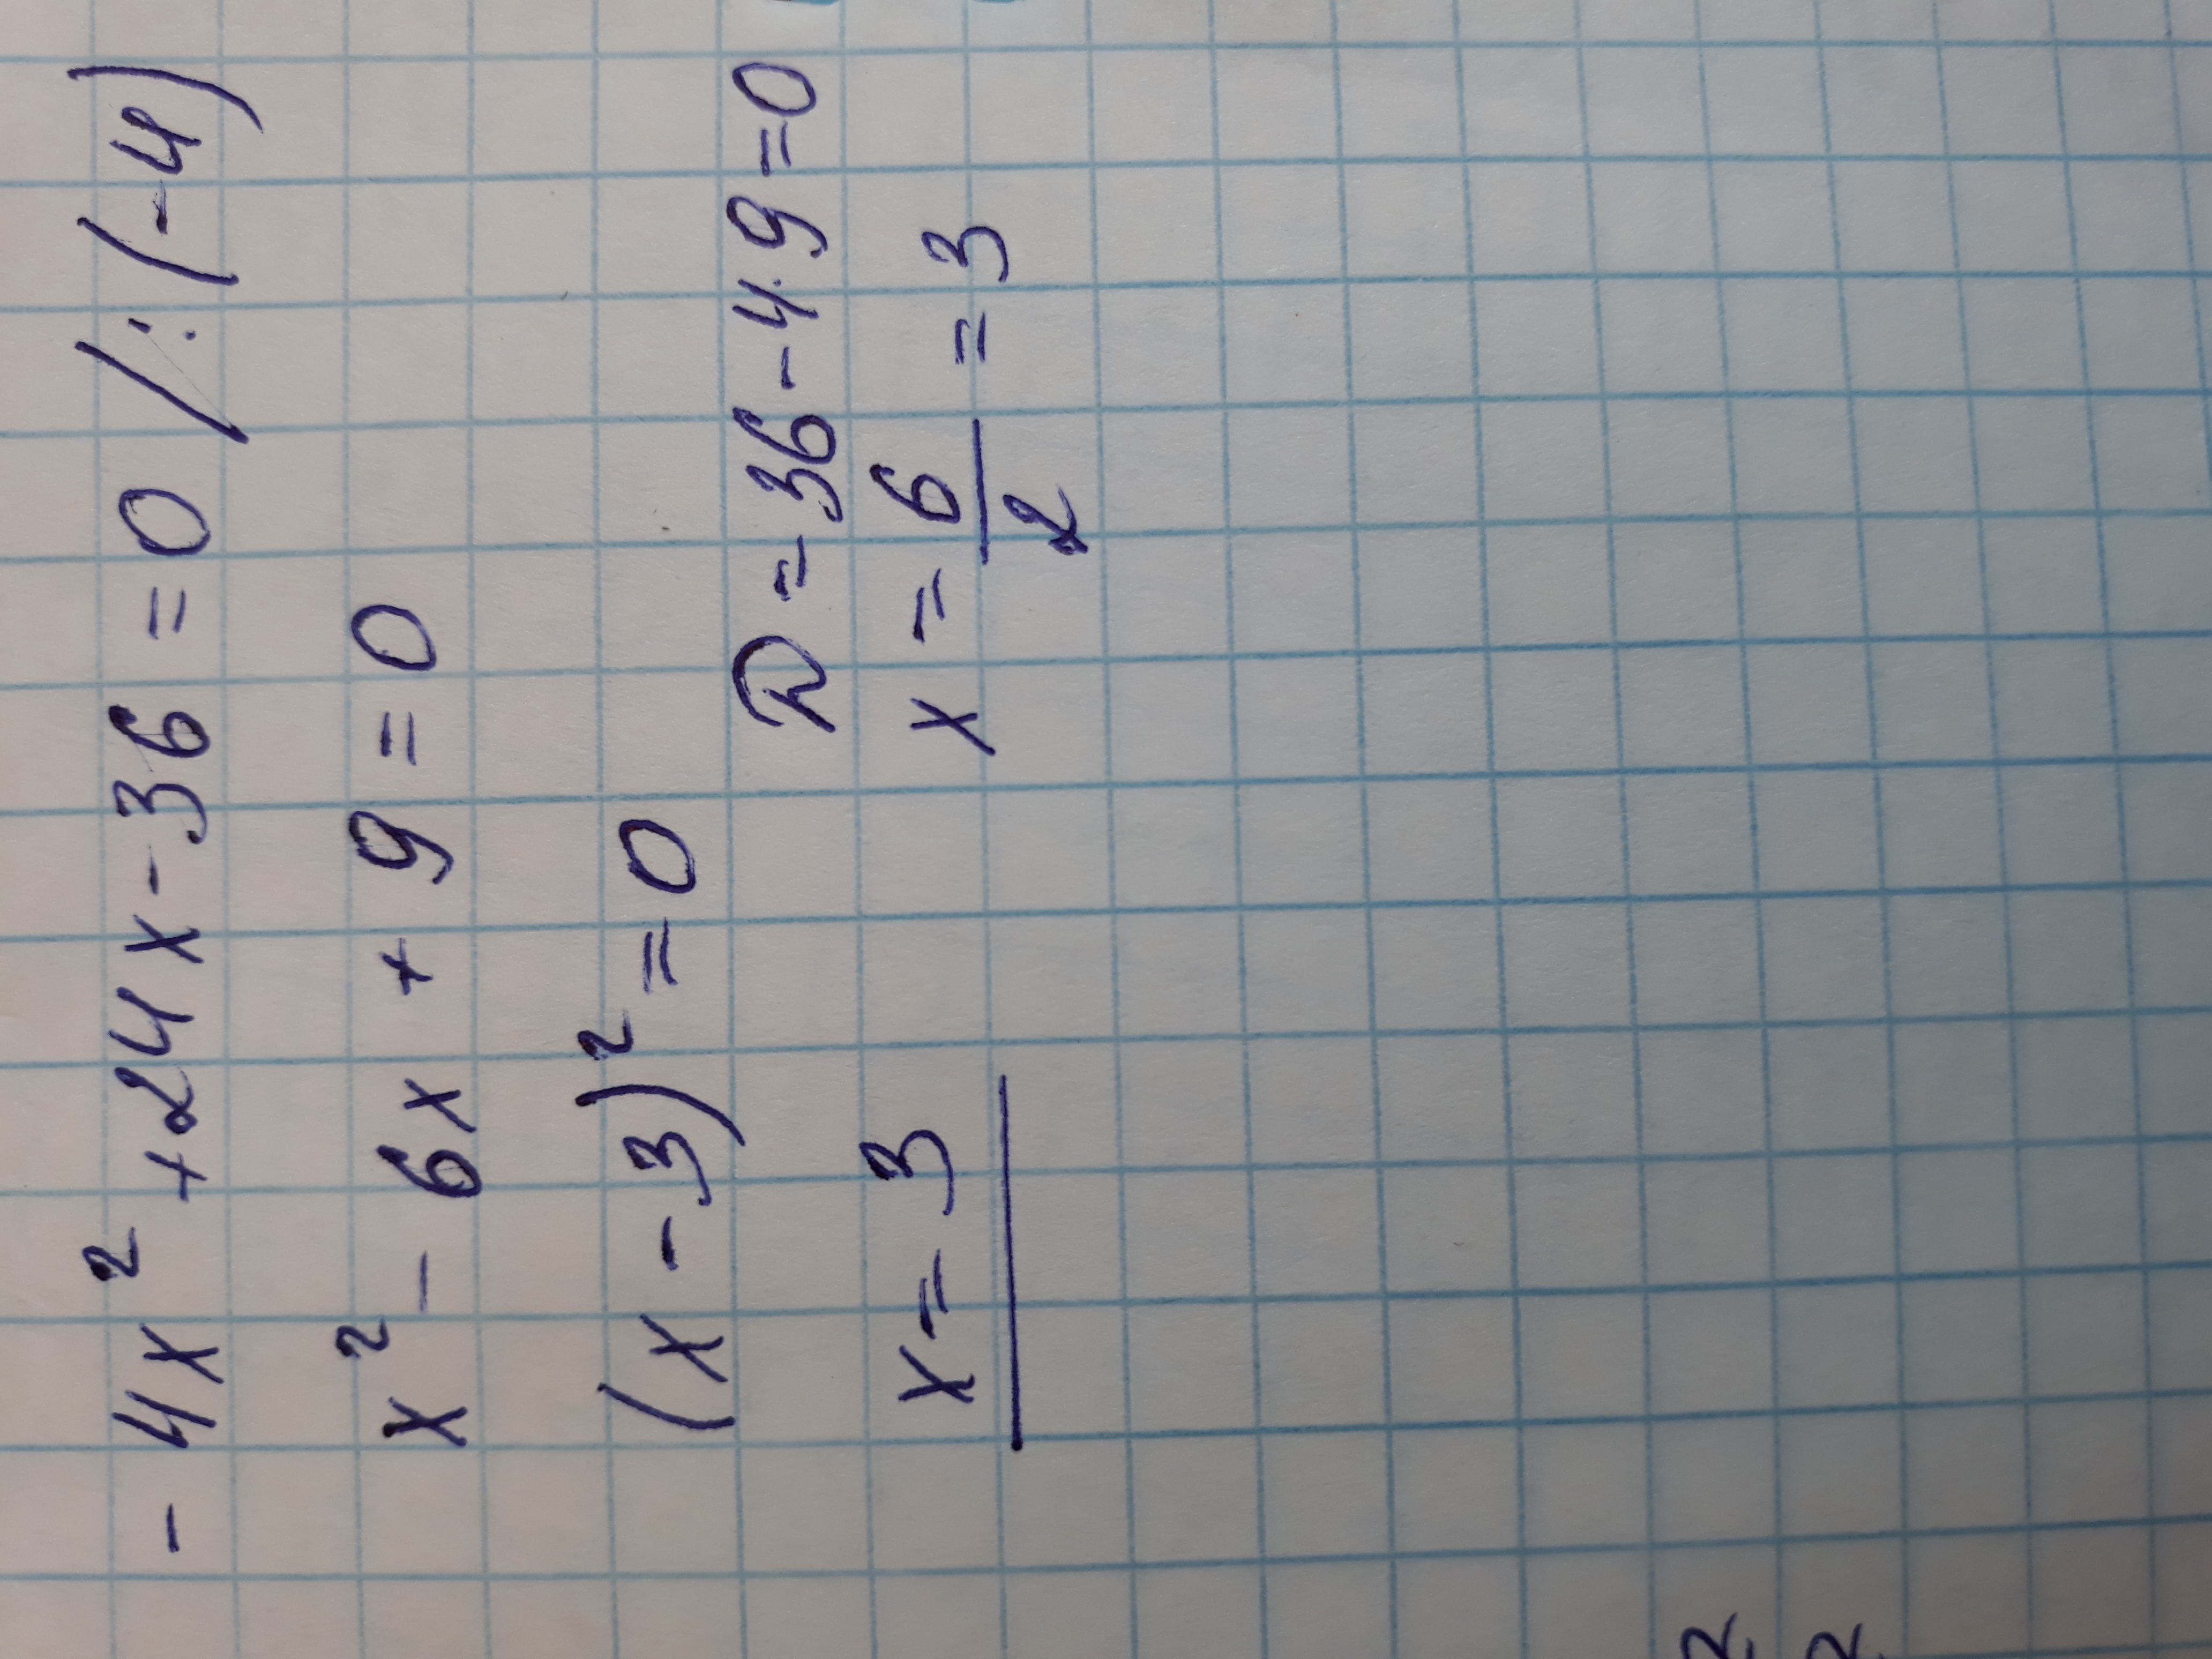 - 4x² + 24x - 36 = 0 / : (-4)
x² - 6x + 9 = 0
(x - 3)² = 0
D = 36 - 4·9 = 0
x = 3
x = 6/2 = 3
2
2